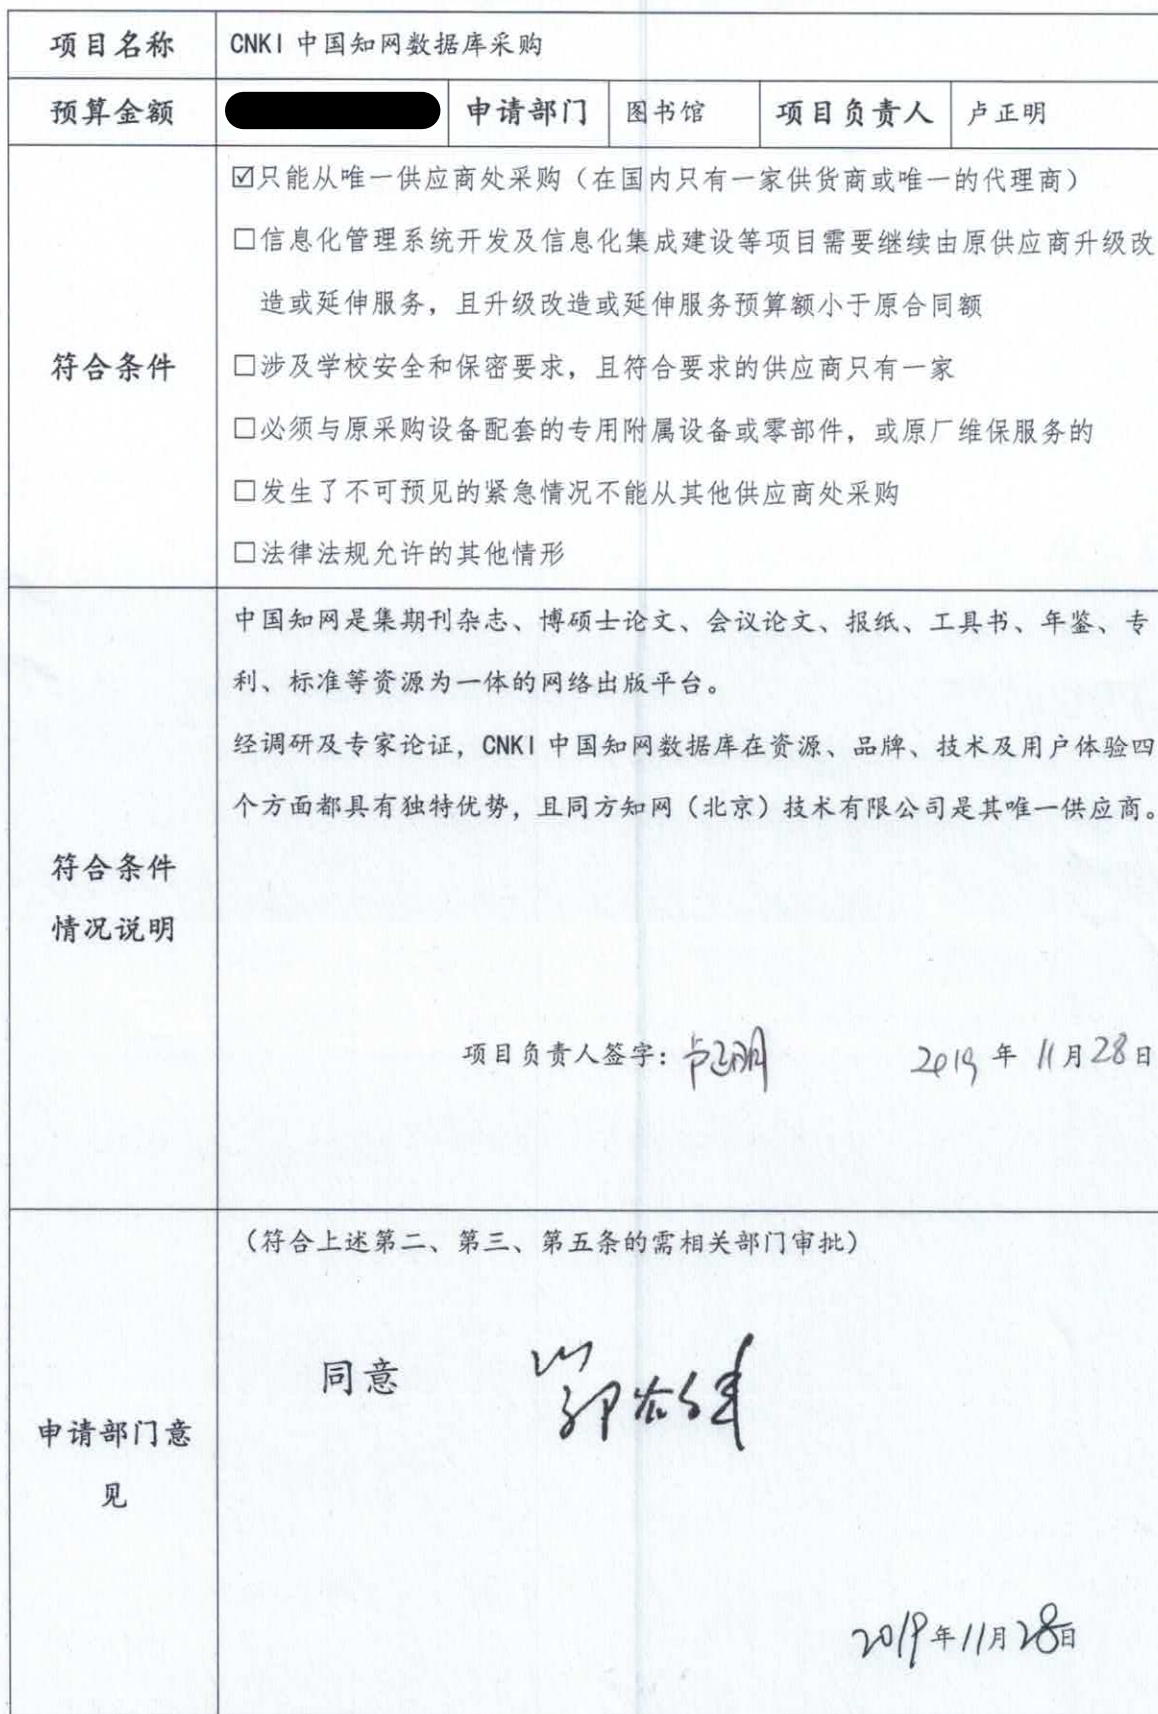 项目名称 CNKI 中国知网数据库采购
预算金额 申请部门 图书馆 项目负责人 卢正明
☑只能从唯一供应商处采购（在国内只有一家供货商或唯一的代理商）
□信息化管理系统开发及信息化集成建设等项目需要继续由原供应商升级改
造或延伸服务，且升级改造或延伸服务预算额小于原合同额
符合条件 □涉及学校安全和保密要求，且符合要求的供应商只有一家
□必须与原采购设备配套的专用附属设备或零部件，或原厂维保服务的
□发生了不可预见的紧急情况不能从其他供应商处采购
□法律法规允许的其他情形
中国知网是集期刊杂志、博硕士论文、会议论文、报纸、工具书、年鉴、专
利、标准等资源为一体的网络出版平台。
经调研及专家论证，CNKI 中国知网数据库在资源、品牌、技术及用户体验四
个方面都具有独特优势，且同方知网（北京）技术有限公司是其唯一供应商。
符合条件
情况说明
项目负责人签字：卢正明 2019 年 11 月 28 日
（符合上述第二、第三、第五条的需相关部门审批）
同意
申请部门意
见
2019年11月28日